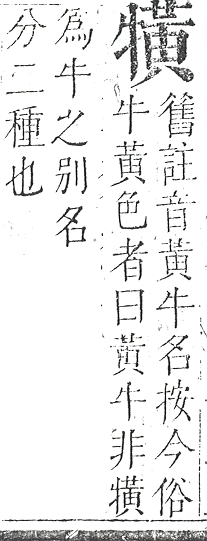 犢
舊註音黄牛名按今俗
牛黄色者曰黄牛非犢
為牛之别名
分二種也